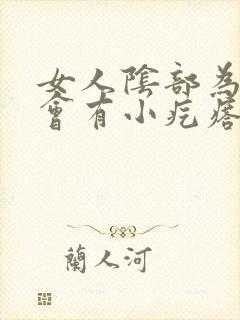 女人陰部為
會有小疙瘩
蘭人河